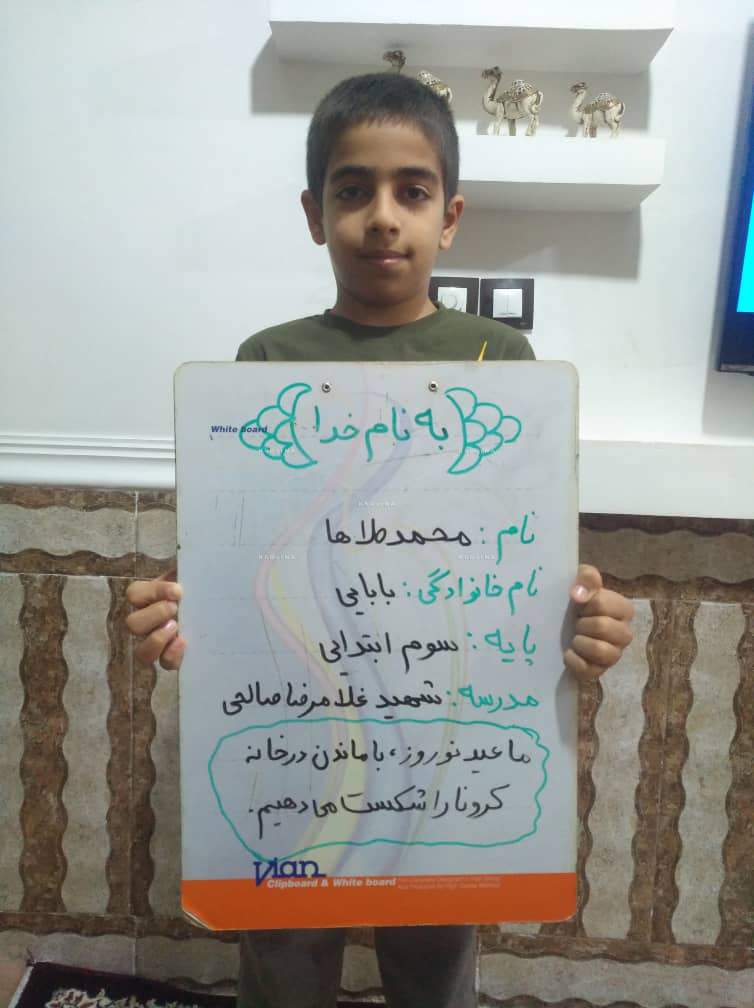 به نام خدا
White board
نام: محمدطاها
نام خانوادگی: بابایی
پایه: سوم ابتدایی
مدرسه: شهید غلامرضا صالحی
ما عید نوروز، با ماندن در خانه
کرونا را شکست می دهیم.
Vian
Clipboard & White board